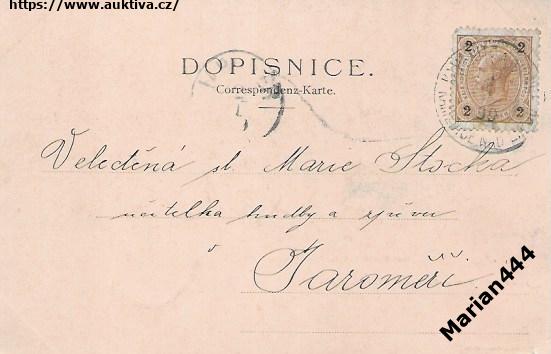 https://www.auktiva.cz/
DOPISNICE.
Correspondenz-Karte.
2 2
2 2
Veleděná sl. Marie Stocka
učitelka hudby a zpěvu
v
Jaroměři.
Marian444